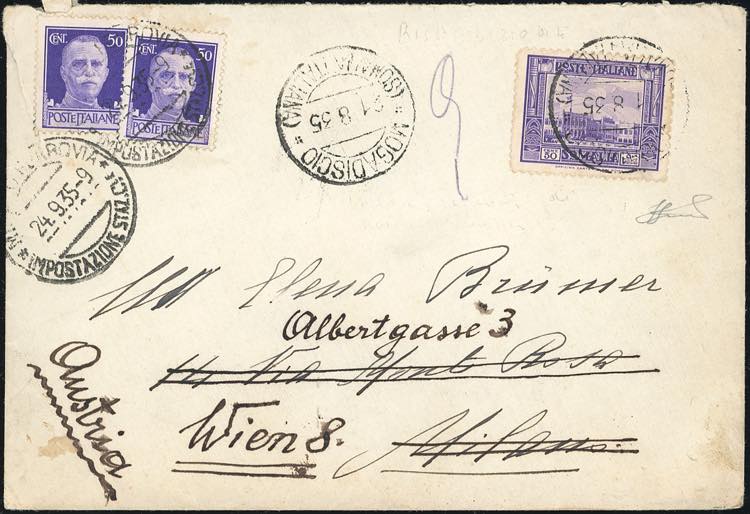 CENT. 50
POSTE ITALIANE
CENT. 50
POSTE ITALIANE
FERROVIA
IMPOSTAZIONE
FERROVIA
24.9.35-9
IMPOSTAZIONE STAZ.
* MOGADISCIO * (SOMALIA ITALIANA)
1 8.35
POSTE ITALIANE
50 SOMALIA
8.35
Elena Brümer
Albertgasse 3
14 Via Monte Rosa
Wien 8. Milano
Austria